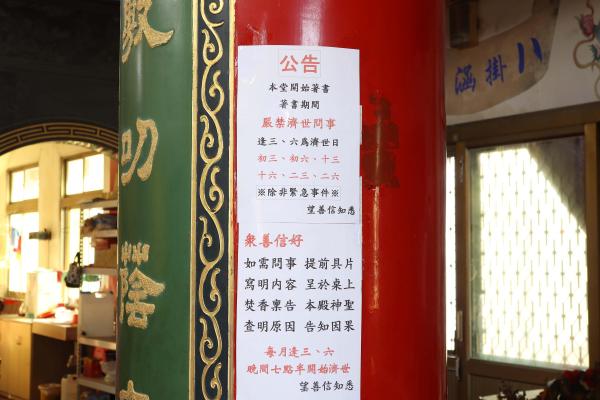 公告
本堂開始著書
著書期間
嚴禁濟世問事
逢三、六為濟世日
初三、初六、十三
十六、二三、二六
※除非緊急事件※
望善信知悉
眾善信好
如需問事 提前具片
寫明內容 呈於桌上
焚香稟告 本殿神聖
查明原因 告知因果
每月逢三、六
晚間七點半開始濟世
望善信知悉
叩蔭
八掛涵